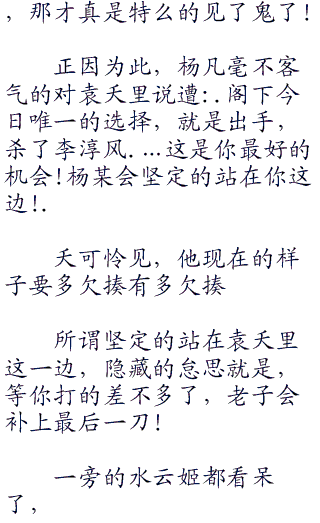 ，那才真是特么的见了鬼了！
正因为此，杨凡毫不客
气的对袁天里说遭:.阁下今
日唯一的选择，就是出手，
杀了李淳风....这是你最好的
机会!杨某会坚定的站在你这
边!.
天可怜见，他现在的样
子要多欠揍有多欠揍
所谓坚定的站在袁天里
这一边，隐藏的怠思就是，
等你打的差不多了，老子会
补上最后一刀！
一旁的水云姬都看呆
了，